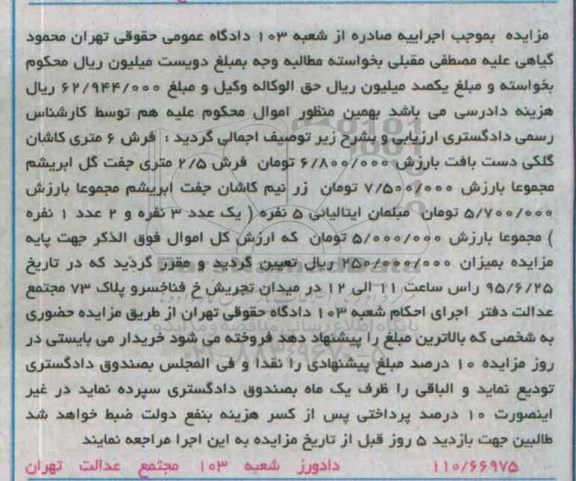 مزایده بموجب اجراییه صادره از شعبه ۱۰۳ دادگاه عمومی حقوقی تهران محمود
گیاهی علیه مصطفی مقبلی بخواسته مطالبه وجه بمبلغ دویست میلیون ریال محکوم
بخواسته و مبلغ یکصد میلیون ریال حق الوکاله وکیل و مبلغ ۶۲/۹۴۴/۰۰۰ ریال
هزینه دادرسی می باشد بهمین منظور اموال محکوم علیه هم توسط کارشناس
رسمی دادگستری ارزیابی و بشرح زیر توصیف اجمالی گردید : فرش ۶ متری کاشان
گلکی دست بافت بارزش ۶/۸۰۰/۰۰۰ تومان فرش ۲/۵ متری جفت گل ابریشم
مجموعا بارزش ۷/۵۰۰/۰۰۰ تومان زر نیم کاشان جفت ابریشم مجموعا بارزش
۵/۷۰۰/۰۰۰ تومان مبلمان ایتالیائی ۵ نفره ( یک عدد ۳ نفره و ۲ عدد ۱ نفره
) مجموعا بارزش ۵/۰۰۰/۰۰۰ تومان که ارزش کل اموال فوق الذکر جهت پایه
مزایده بمیزان ۲۵۰/۰۰۰/۰۰۰ ریال تعیین گردید و مقرر گردید که در تاریخ
۹۵/۶/۲۵ راس ساعت ۱۱ الی ۱۲ در میدان تجریش خ فناخسرو پلاک ۷۳ مجتمع
عدالت دفتر اجرای احکام شعبه ۱۰۳ دادگاه حقوقی تهران از طریق مزایده حضوری
به شخصی که بالاترین مبلغ را پیشنهاد دهد فروخته می شود خریدار می بایستی در
روز مزایده ۱۰ درصد مبلغ پیشنهادی را نقدا و فی المجلس بصندوق دادگستری
تودیع نماید و الباقی را ظرف یک ماه بصندوق دادگستری سپرده نماید در غیر
اینصورت ۱۰ درصد پرداختی پس از کسر هزینه بنفع دولت ضبط خواهد شد
طالبین جهت بازدید ۵ روز قبل از تاریخ مزایده به این اجرا مراجعه نمایند
۱۱۰/۶۶۹۷۵ دادورز شعبه ۱۰۳ مجتمع عدالت تهران